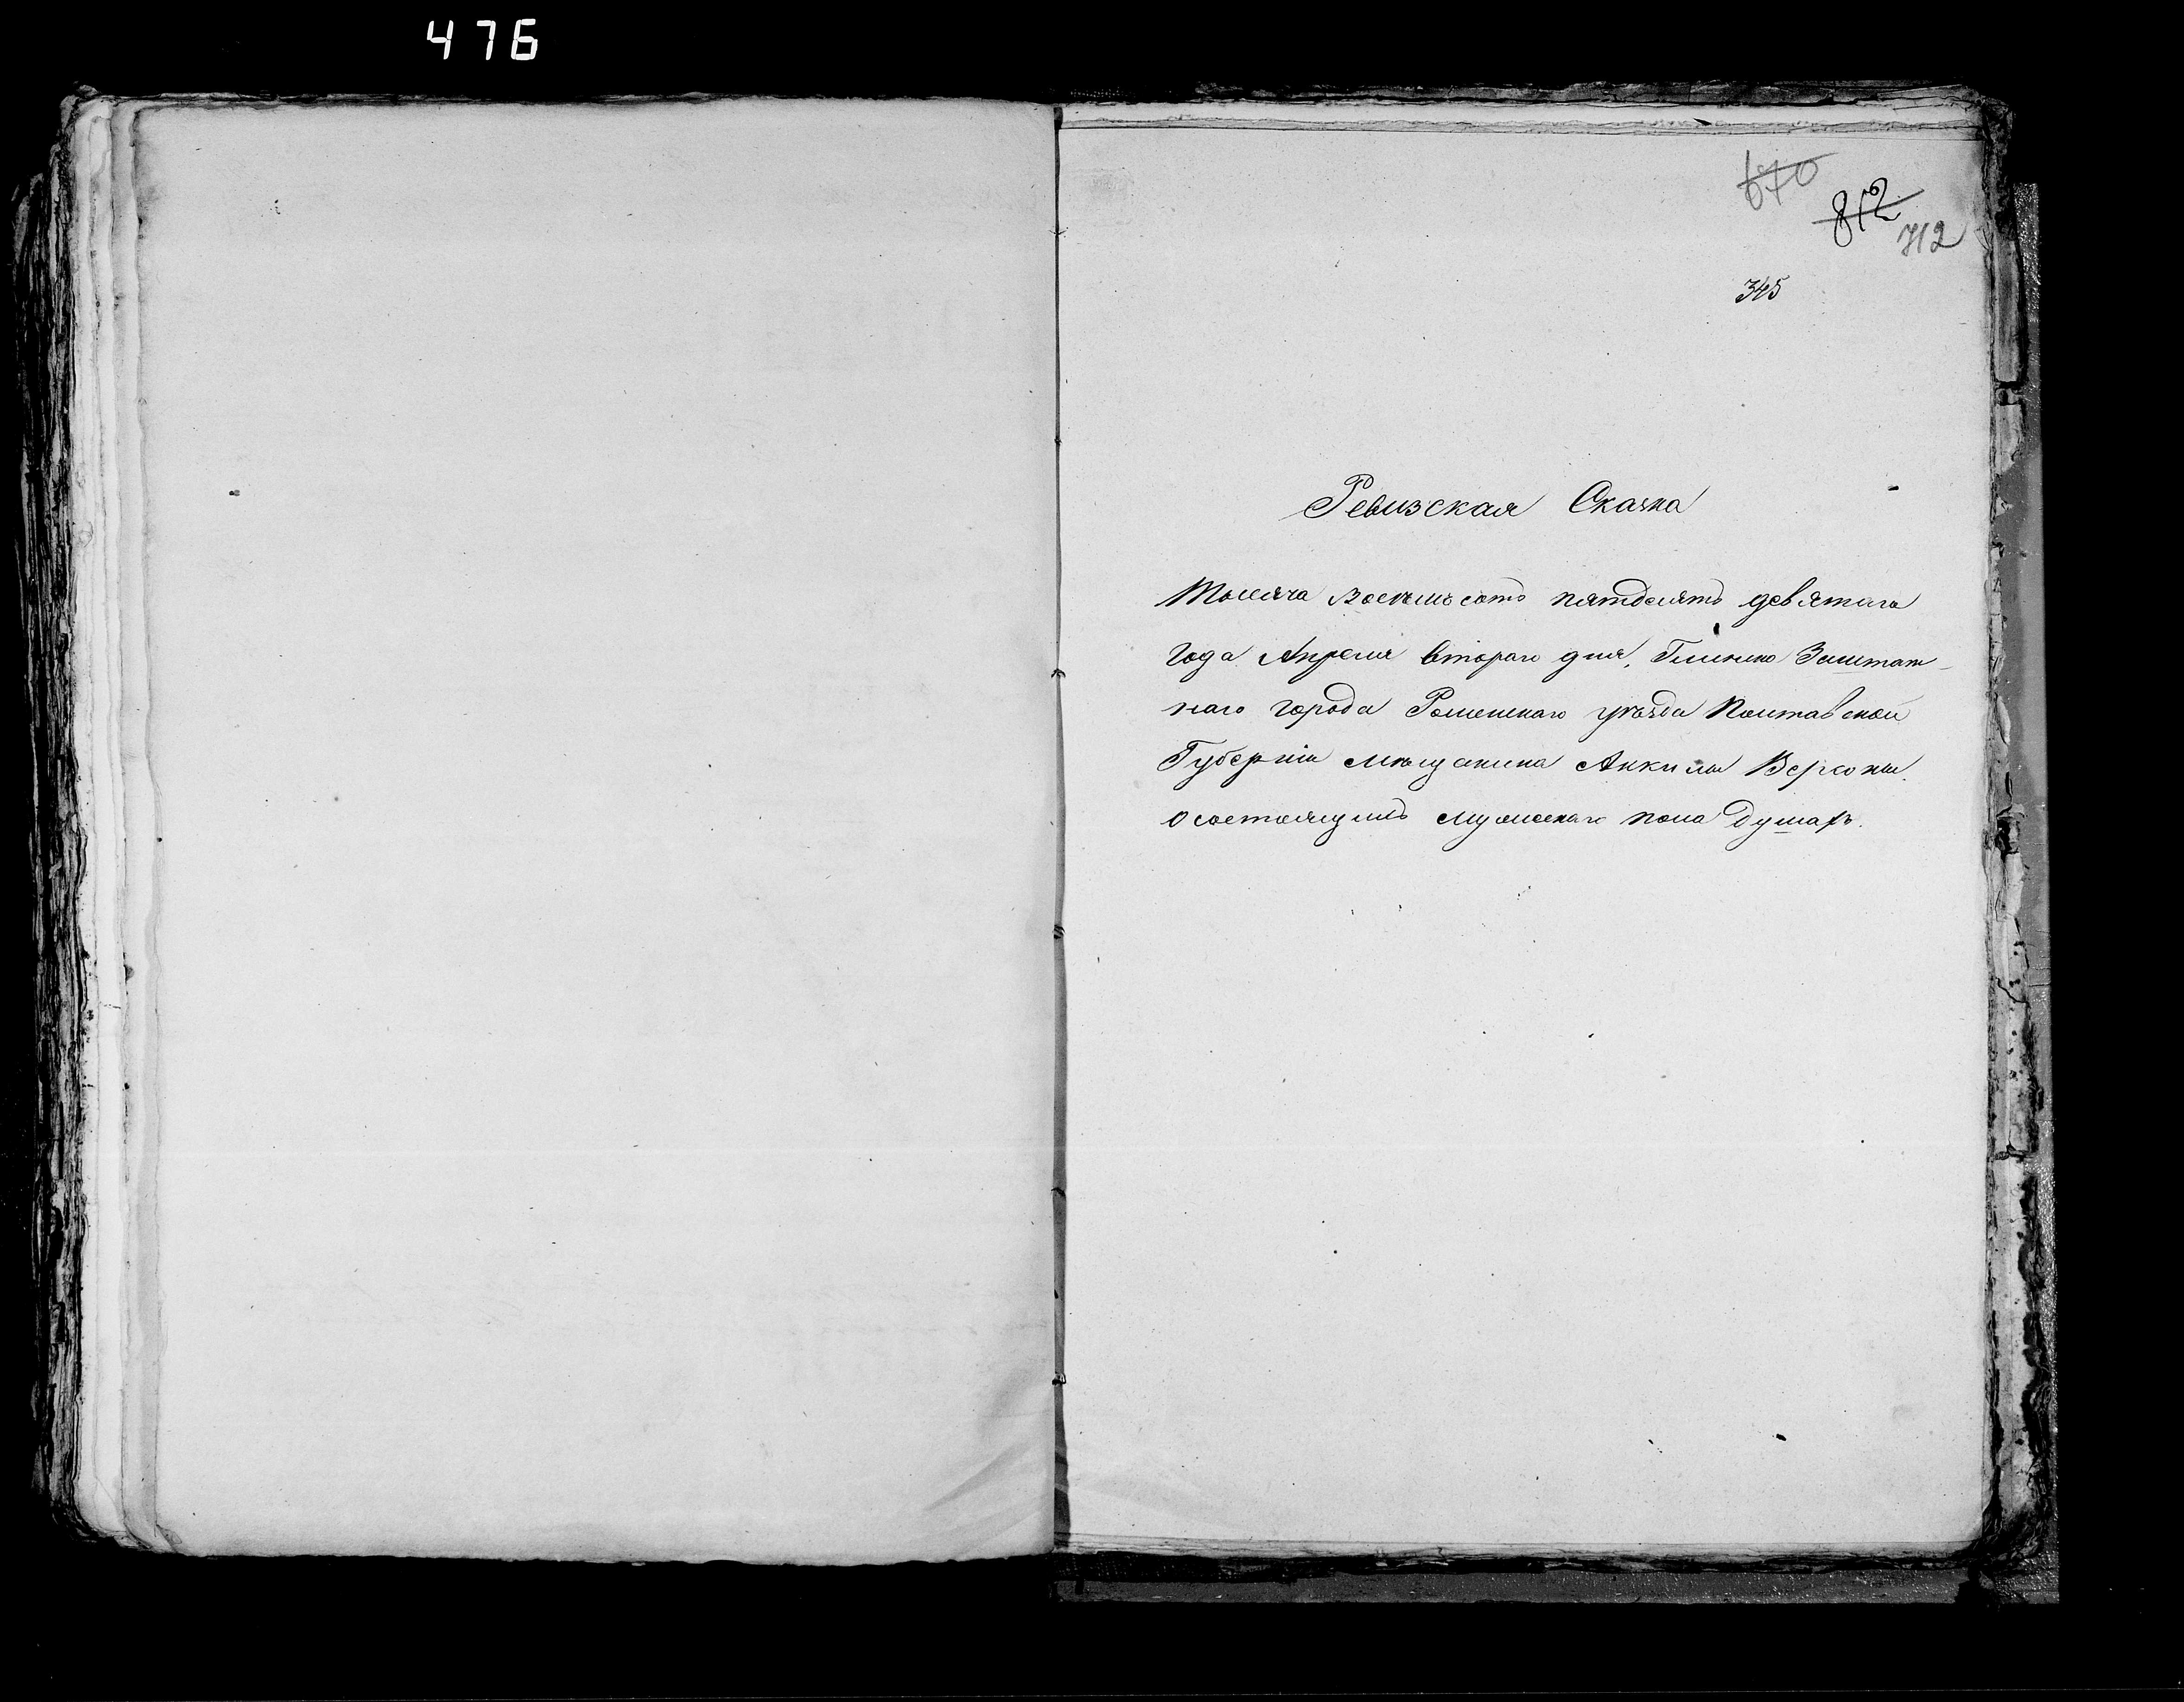 476
670
812
712
345
Ревизская Сказка
Тысяча восемьсотъ пятдесятъ девятаго
года Апреля втораго дня, Глинско Заштат-
наго города Роменскаго уѣзда Полтавской
Губерніи мѣщанина Аккилы
о состоящихъ мужескаго пола душахъ.